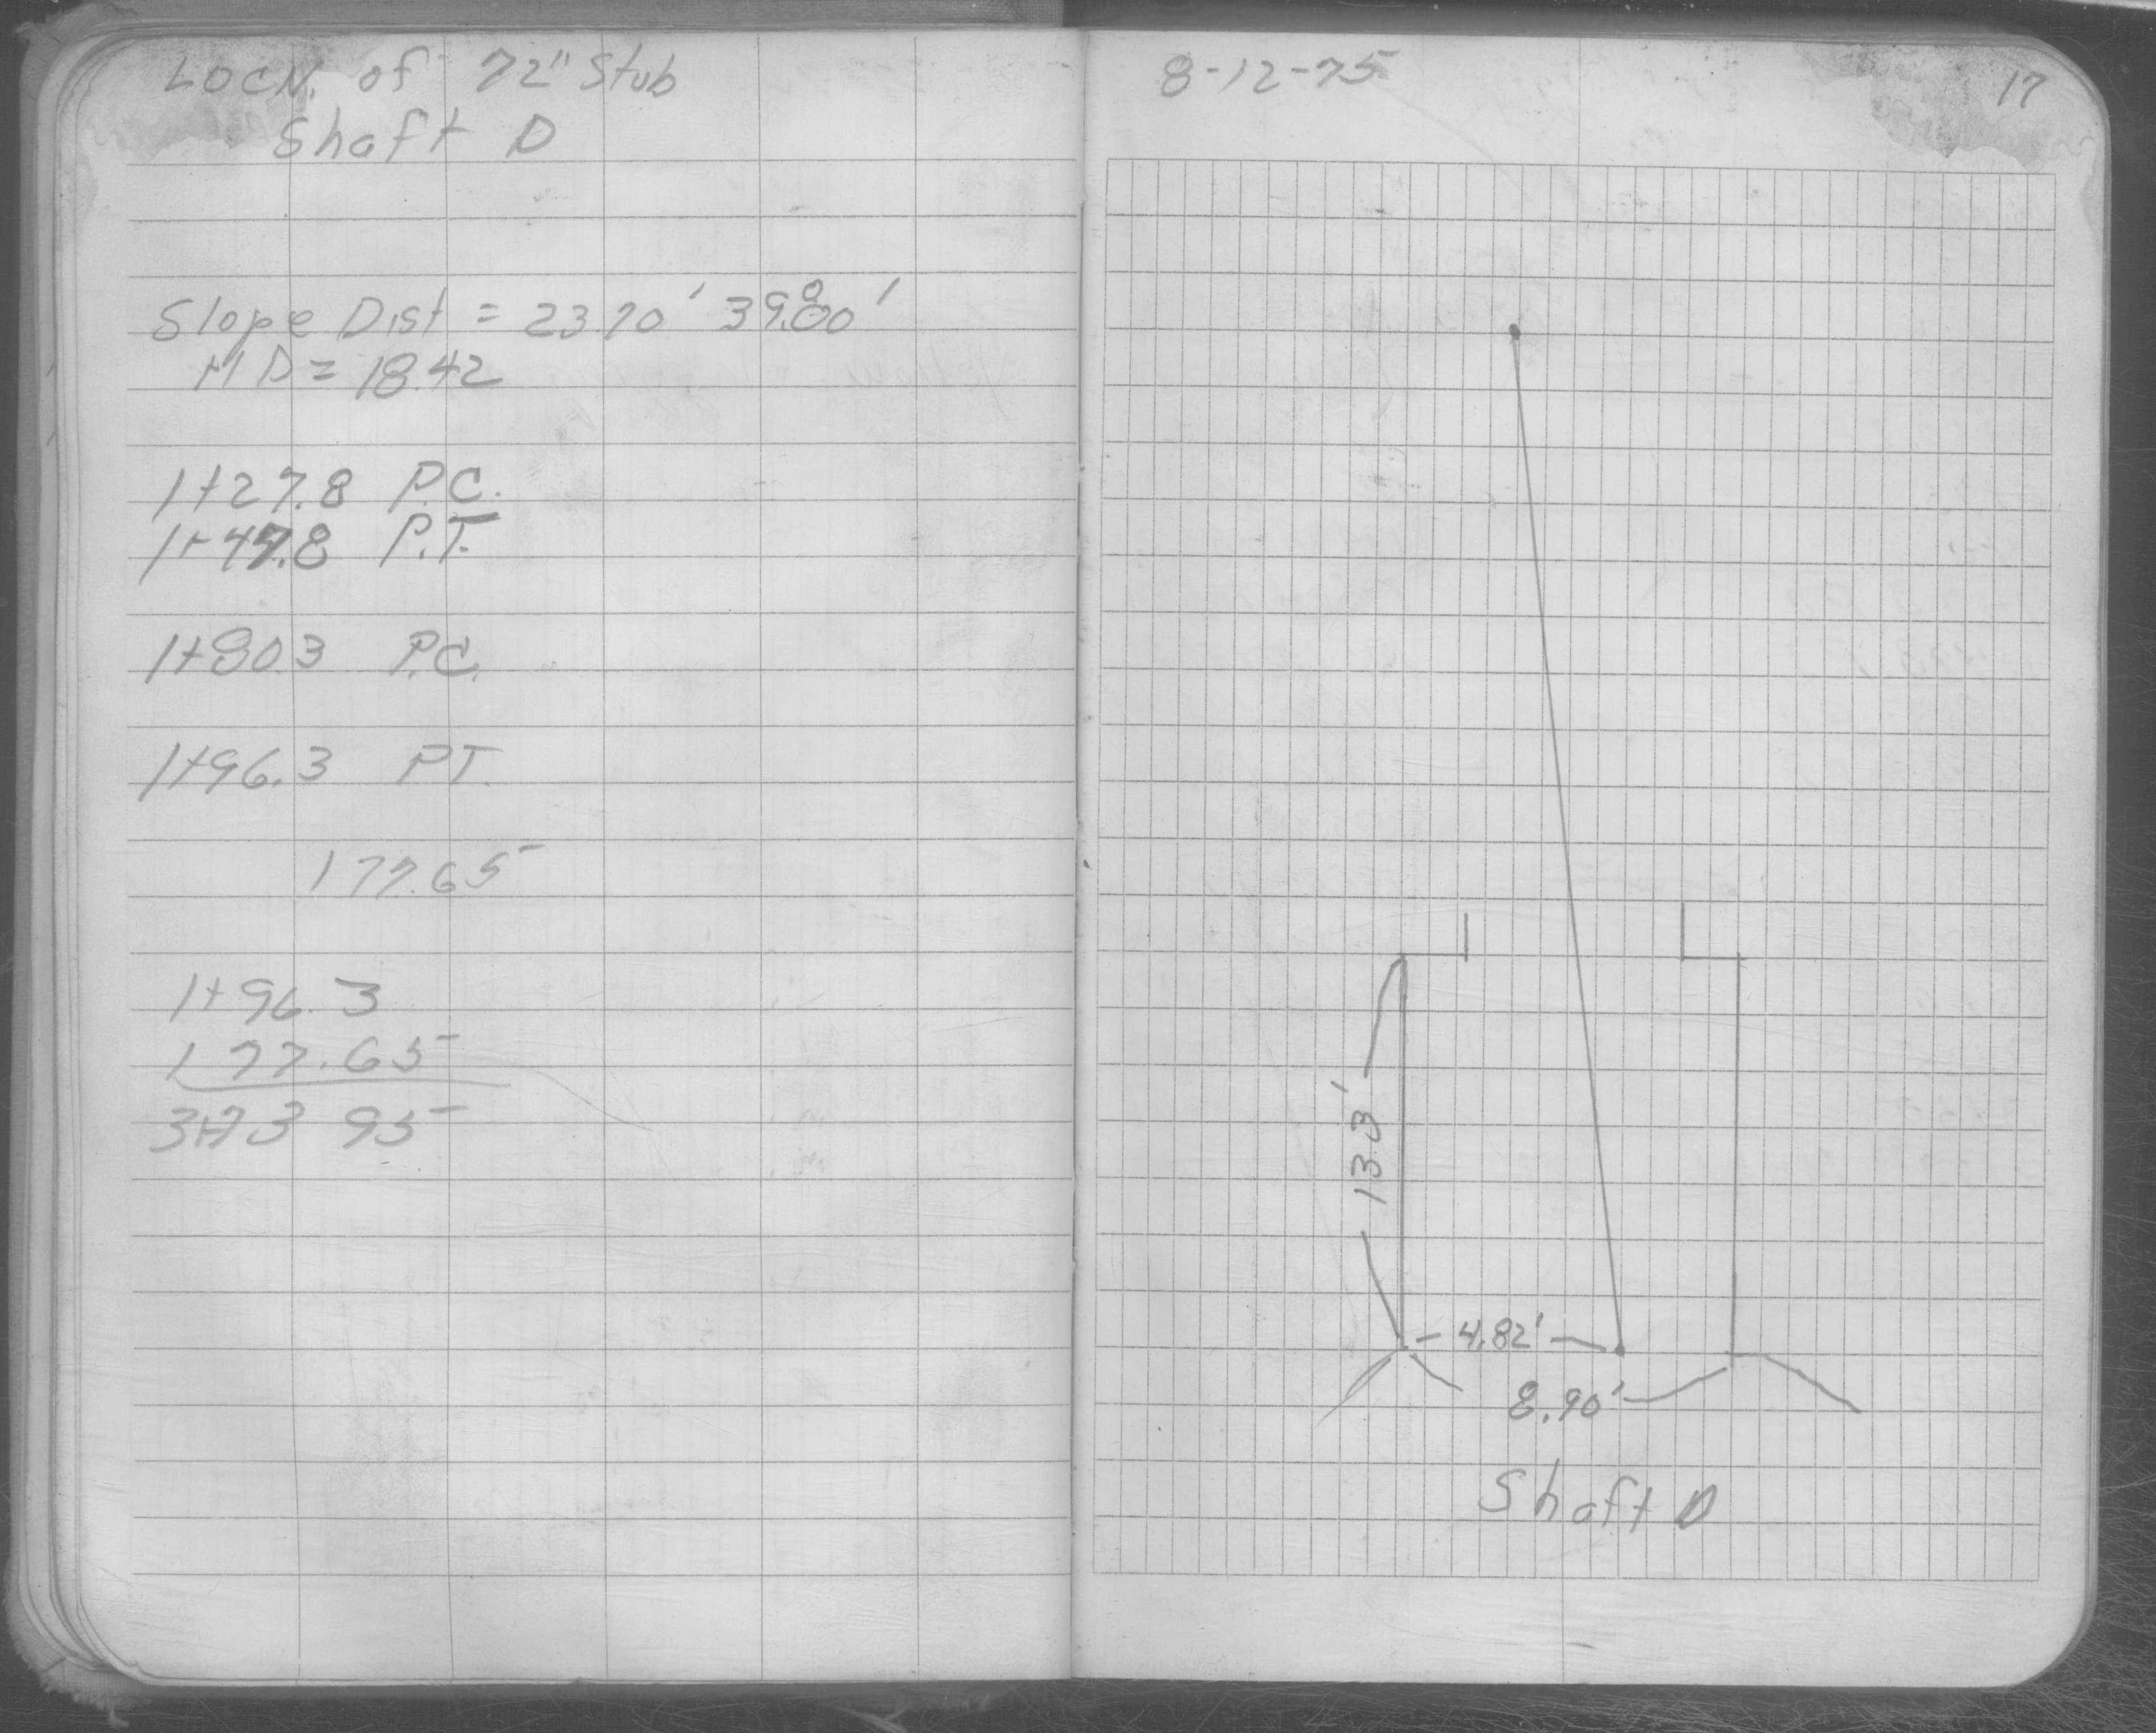 LOCN. of 72" Stub
Shaft D
Slope Dist = 23.70' 39.80'
MD = 18.42
1+27.8 P.C.
1+47.8 P.T.
1+80.3 P.C.
1+96.3 P.T.
177.65
1+96.3
177.65
3+73 95
8-12-75
17
13.3'
4.82'
8.90'
Shaft D